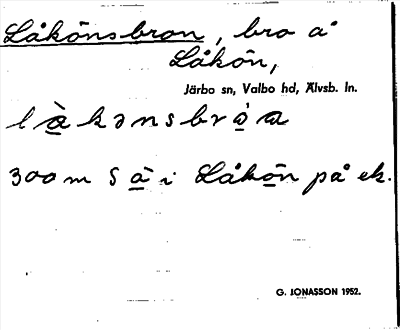 Låkönsbron, bro å
Låkön,
Järbo sn, Valbo hd, Älvsb. ln.
l à̱ kənsbr ó̱ a
300 m S ä i Låkön på ek.
G. JONASSON 1952.